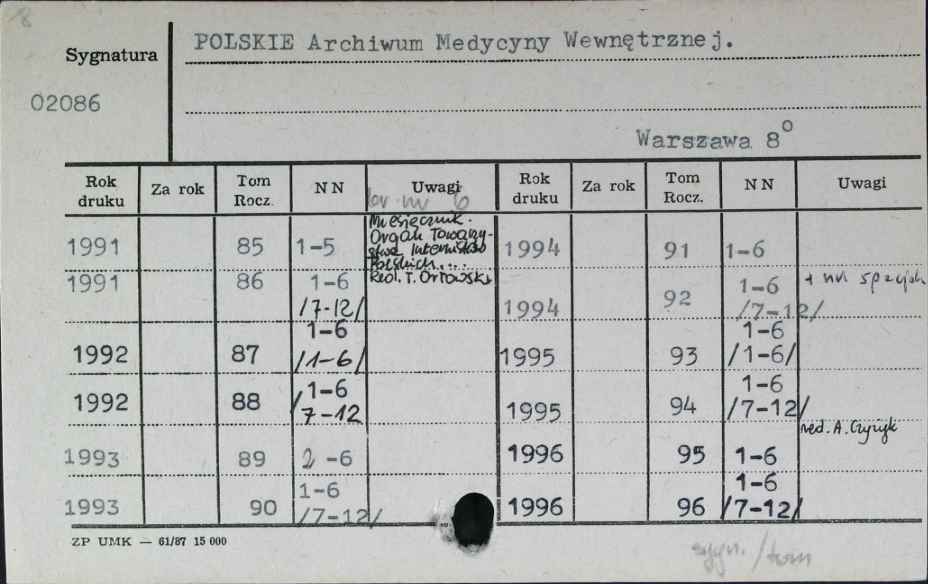 8
POLSKIE Archiwum Medycyny Wewnętrznej.
Sygnatura
02086
Warszawa 8°
Rok druku Za rok Tom Rocz. NN Uwagi Rok druku Za rok Tom Rocz. NN Uwagi
nr 6
Miesięcznik.
Organ Towarzy-
stwa Internistów
Polskich...
Red. T. Orłowski
1991 85 1-5 1994 91 1-6
1991 86 1-6 /7-12/ 1994 92 1-6 /7-12/ + nr specjaln
1992 87 1-6 /1-6/ 1995 93 1-6 /1-6/
1992 88 1-6 /7-12 1995 94 1-6 /7-12/
red. A. Czyżyk
1993 89 2-6 1996 95 1-6
1993 90 1-6 /7-12/ 1996 96 1-6 /7-12/
ZP UMK — 61/87 15 000
sygn. /tom